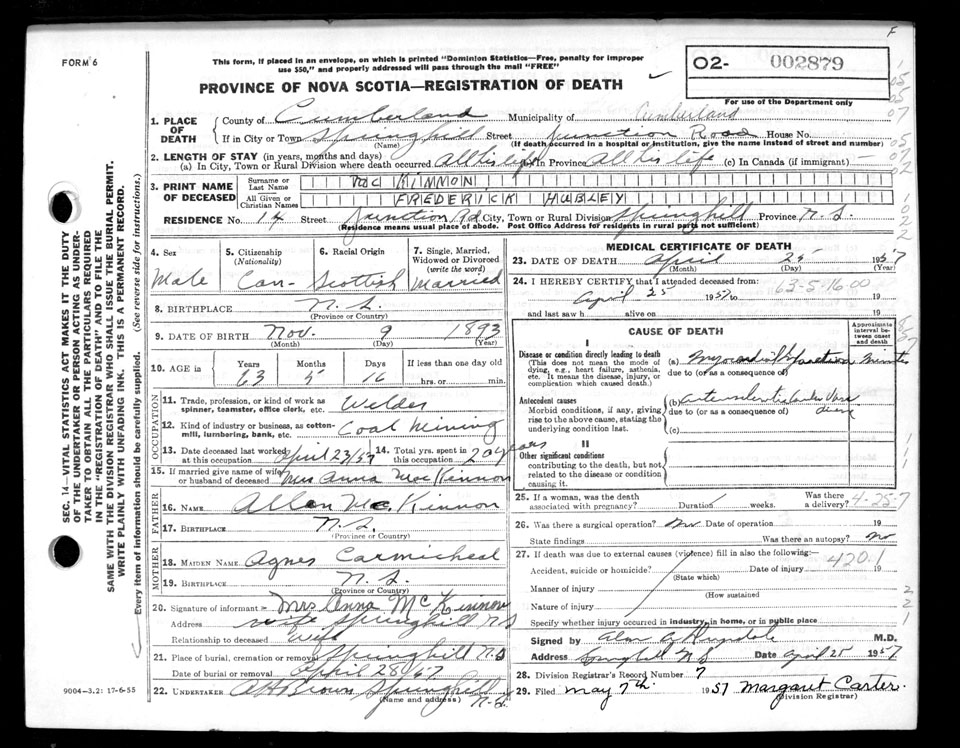 F
FORM 6
This form, if placed in an envelope, on which is printed "Dominion Statistics—Free, penalty for improper
use $50," and properly addressed will pass through the mail "FREE"
PROVINCE OF NOVA SCOTIA—REGISTRATION OF DEATH
O2- 002879
For use of the Department only
1. PLACE OF DEATH
County of Cumberland Municipality of Cumberland
If in City or Town Springhill Street Junction Road House No.
(Name) (If death occurred in a hospital or institution, give the name instead of street and number)
2. LENGTH OF STAY (in years, months and days)
(a) In City, Town or Rural Division where death occurred All his life (b) In Province All his life (c) In Canada (if immigrant) —
3. PRINT NAME OF DECEASED
Surname or Last Name Mc KINNON
All Given or Christian Names FREDERICK HUBLEY
RESIDENCE No. 14 Street Junction Rd City, Town or Rural Division Springhill Province N.S.
(Residence means usual place of abode. Post Office Address for residents in rural parts not sufficient)
4. Sex Male
5. Citizenship (Nationality) Can-
6. Racial Origin Scottish
7. Single, Married, Widowed or Divorced (write the word) Married
8. BIRTHPLACE N.S.
(Province or Country)
9. DATE OF BIRTH Nov. 9 1893
(Month) (Day) (Year)
10. AGE in Years Months Days If less than one day old
63 5 16 hrs. or min.
OCCUPATION
11. Trade, profession, or kind of work as spinner, teamster, office clerk, etc. Welder
12. Kind of industry or business, as cotton-mill, lumbering, bank, etc. Coal Mining
13. Date deceased last worked at this occupation April 23/57
14. Total yrs. spent in this occupation 20 years
15. If married give name of wife or husband of deceased Mrs Anna MacKinnon
FATHER
16. NAME Allan McKinnon
17. BIRTHPLACE N.S.
(Province or Country)
MOTHER
18. MAIDEN NAME Agnes Carmicheal
19. BIRTHPLACE N.S.
(Province or Country)
20. Signature of informant Mrs Anna McKinnon
Address wife Springhill N.S
Relationship to deceased Wife
21. Place of burial, cremation or removal Springhill N.S
Date of burial or removal April 28/57
22. UNDERTAKER A H Brown Springhill N.S.
(Name and address)
MEDICAL CERTIFICATE OF DEATH
23. DATE OF DEATH April 25 1957
(Month) (Day) (Year)
24. I HEREBY CERTIFY that I attended deceased from 63-5-16 00
April 25 1957 to 19
and last saw h alive on 19
CAUSE OF DEATH
Approximate interval between onset and death
I
Disease or condition directly leading to death
(This does not mean the mode of dying, e.g., heart failure, asthenia, etc. It means the disease, injury, or complication which caused death.)
(a) Myocardial Infarction minutes
due to (or as a consequence of)
Antecedent causes
Morbid conditions, if any, giving rise to the above cause, stating the underlying condition last.
(b) disease
due to (or as a consequence of)
(c)
II
Other significant conditions
contributing to the death, but not related to the disease or condition causing it.
25. If a woman, was the death associated with pregnancy? Duration weeks. Was there a delivery? 4-25-7
26. Was there a surgical operation? No Date of operation 19
State findings Was there an autopsy? no
27. If death was due to external causes (violence) fill in also the following:—
Accident, suicide or homicide? Date of injury 19
(State which)
420.1
Manner of injury
(How sustained)
Nature of injury
Specify whether injury occurred in industry, in home, or in public place
Signed by M.D.
Address Springhill N S Date April 25 1957
28. Division Registrar's Record Number 7
29. Filed May 7th. 1957 Margaret Carter.
(Division Registrar)
SEC. 14—VITAL STATISTICS ACT MAKES IT THE DUTY
OF THE UNDERTAKER OR PERSON ACTING AS UNDER-
TAKER TO OBTAIN ALL THE PARTICULARS REQUIRED
IN THE "REGISTRATION OF DEATH" AND TO FILE THE
SAME WITH THE DIVISION REGISTRAR WHO SHALL ISSUE THE BURIAL PERMIT.
WRITE PLAINLY WITH UNFADING INK. THIS IS A PERMANENT RECORD.
Every item of information should be carefully supplied. (See reverse side for instructions.)
9004-3.2: 17-6-55